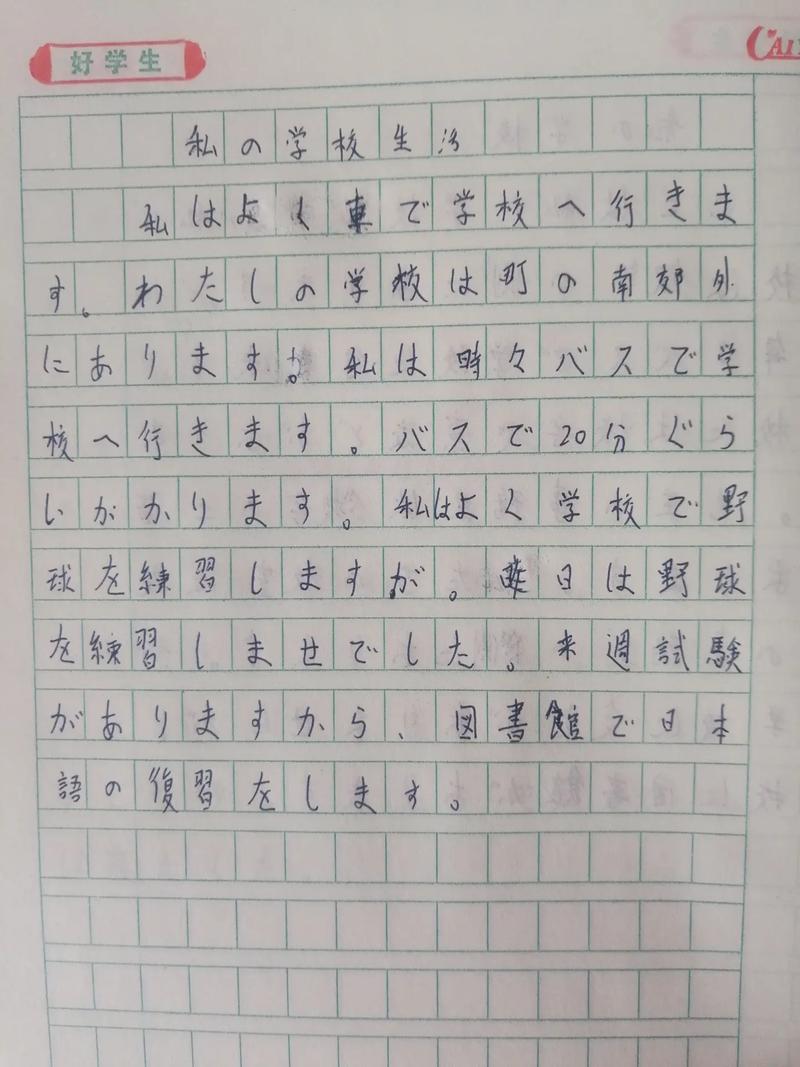 好学生
CAI
私の学校生活
私はよく車で学校へ行きま
す。わたしの学校は町の南郊外
にあります。私は時々バスで学
校へ行きます。バスで20分ぐら
いがかります。私はよく学校で野
球を練習しますが。昨日は野球
を練習しませでした。来週試験
がありますから、図書館で日本
語の復習をします。